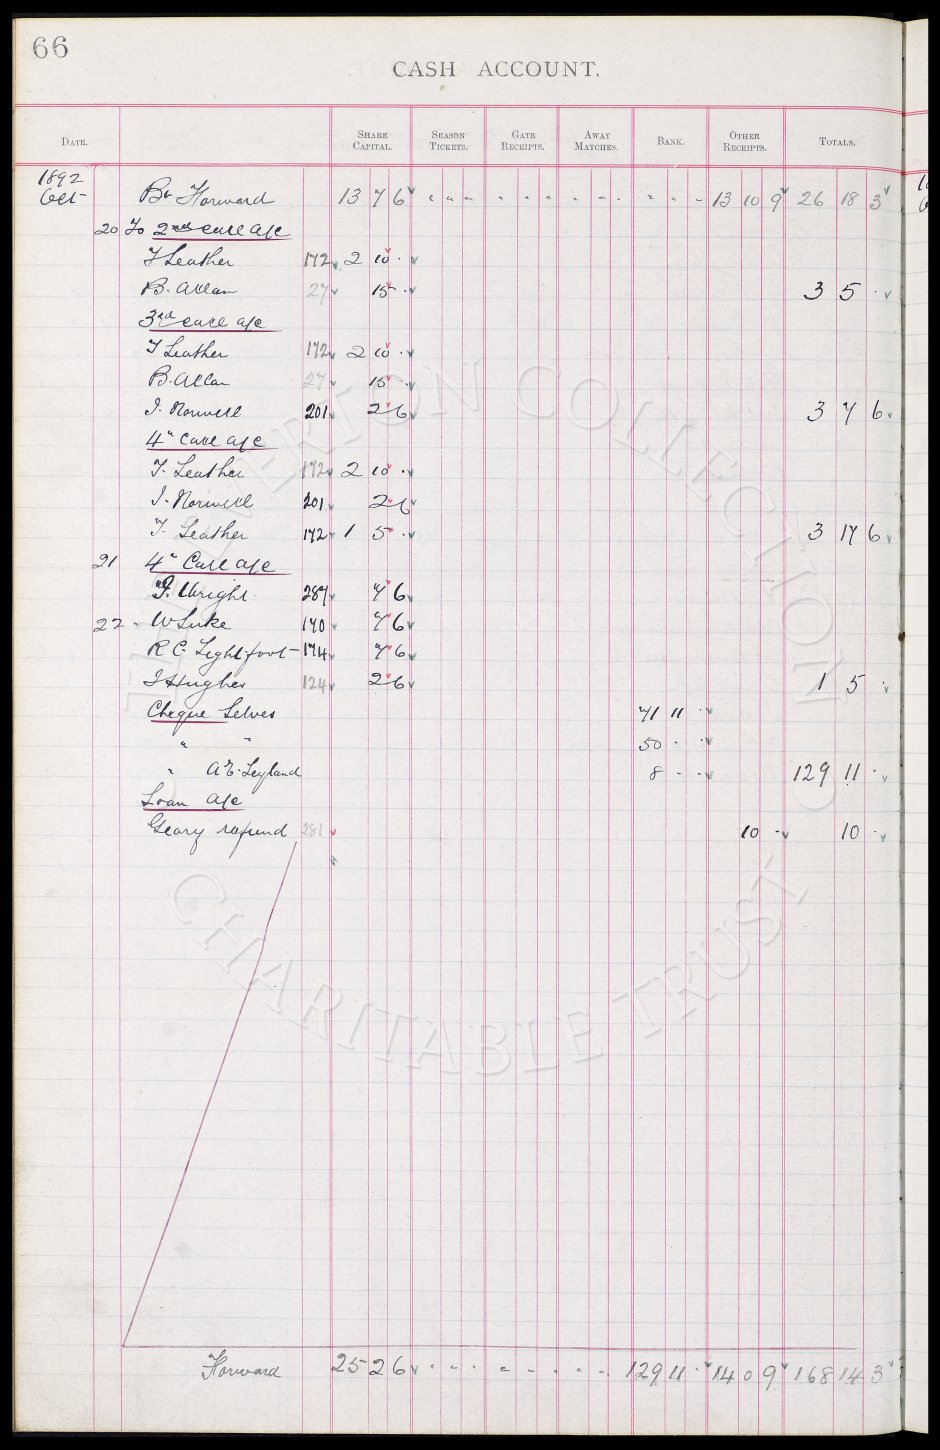 66
CASH ACCOUNT.
DATE. SHARE CAPITAL. SEASON TICKETS. GATE RECEIPTS. AWAY MATCHES. BANK. OTHER RECEIPTS. TOTALS.
1892
Oct Bt Forward 13 7 6 " " " " " " " " " " " - 13 10 9 26 18 3
20 To 2nd call a/c
T Leather 172 2 10 .
B. Allan 27 15 . 3 5 .
3rd call a/c
T Leather 172 2 10 .
B. Allan 27 15 .
J. Norwell 201 2 6 3 7 6
4" Call a/c
T. Leather 172 2 10 .
J. Norwell 201 2 6
T. Leather 172 1 5 . 3 17 6
21 4" Call a/c
J. Wright 287 7 6
22 - W Luke 170 7 6
R C. Lightfoot - 174 7 6
J Hughes 124 2 6 1 5 .
Cheque Selves 71 11 .
" " 50 . .
" A E. Leyland 8 - - 129 11 .
Loan a/c
Geary refund 281 10 - 10 .
Forward 25 2 6 " " . " - - " - 129 11 . 14 0 9 168 14 3
THE EVERTON COLLECTION
CHARITABLE TRUST